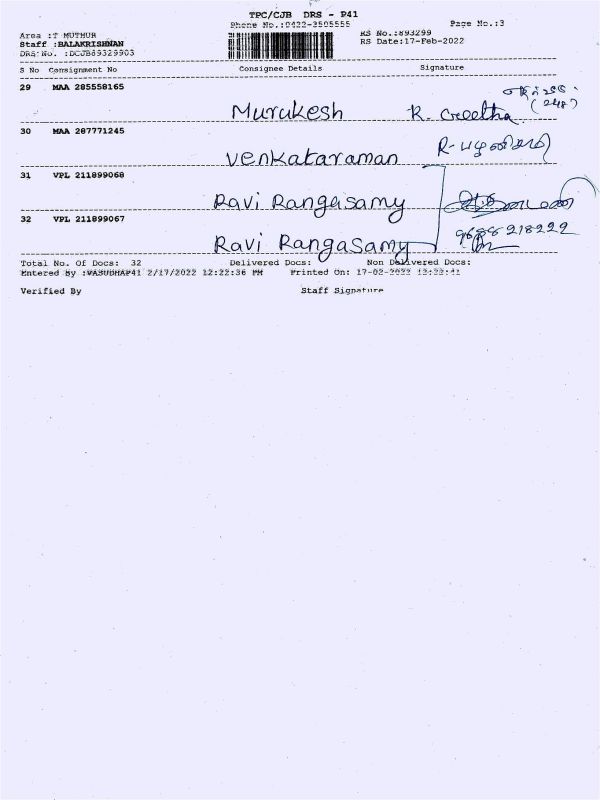 TPC/CJB DRS - P41
Phone No.:0422-3505555 Page No.:3
Area :T MUTHUR RS No.:893299
Staff :BALAKRISHNAN RS Date:17-Feb-2022
DRS No. :DCJB89329903
S No Consignment No Consignee Details Signature
29 MAA 285558165
Murukesh R. Geetha
30 MAA 287771245
Venkataraman R-பழனிசாமி
31 VPL 211899068
Ravi Rangasamy
32 VPL 211899067
9688218222
Ravi Rangasamy
Total No. Of Docs: 32 Delivered Docs: Non Delivered Docs:
Entered By :VASUDHAP41 2/17/2022 12:22:36 PM Printed On: 17-02-2022 12:22:41
Verified By Staff Signature